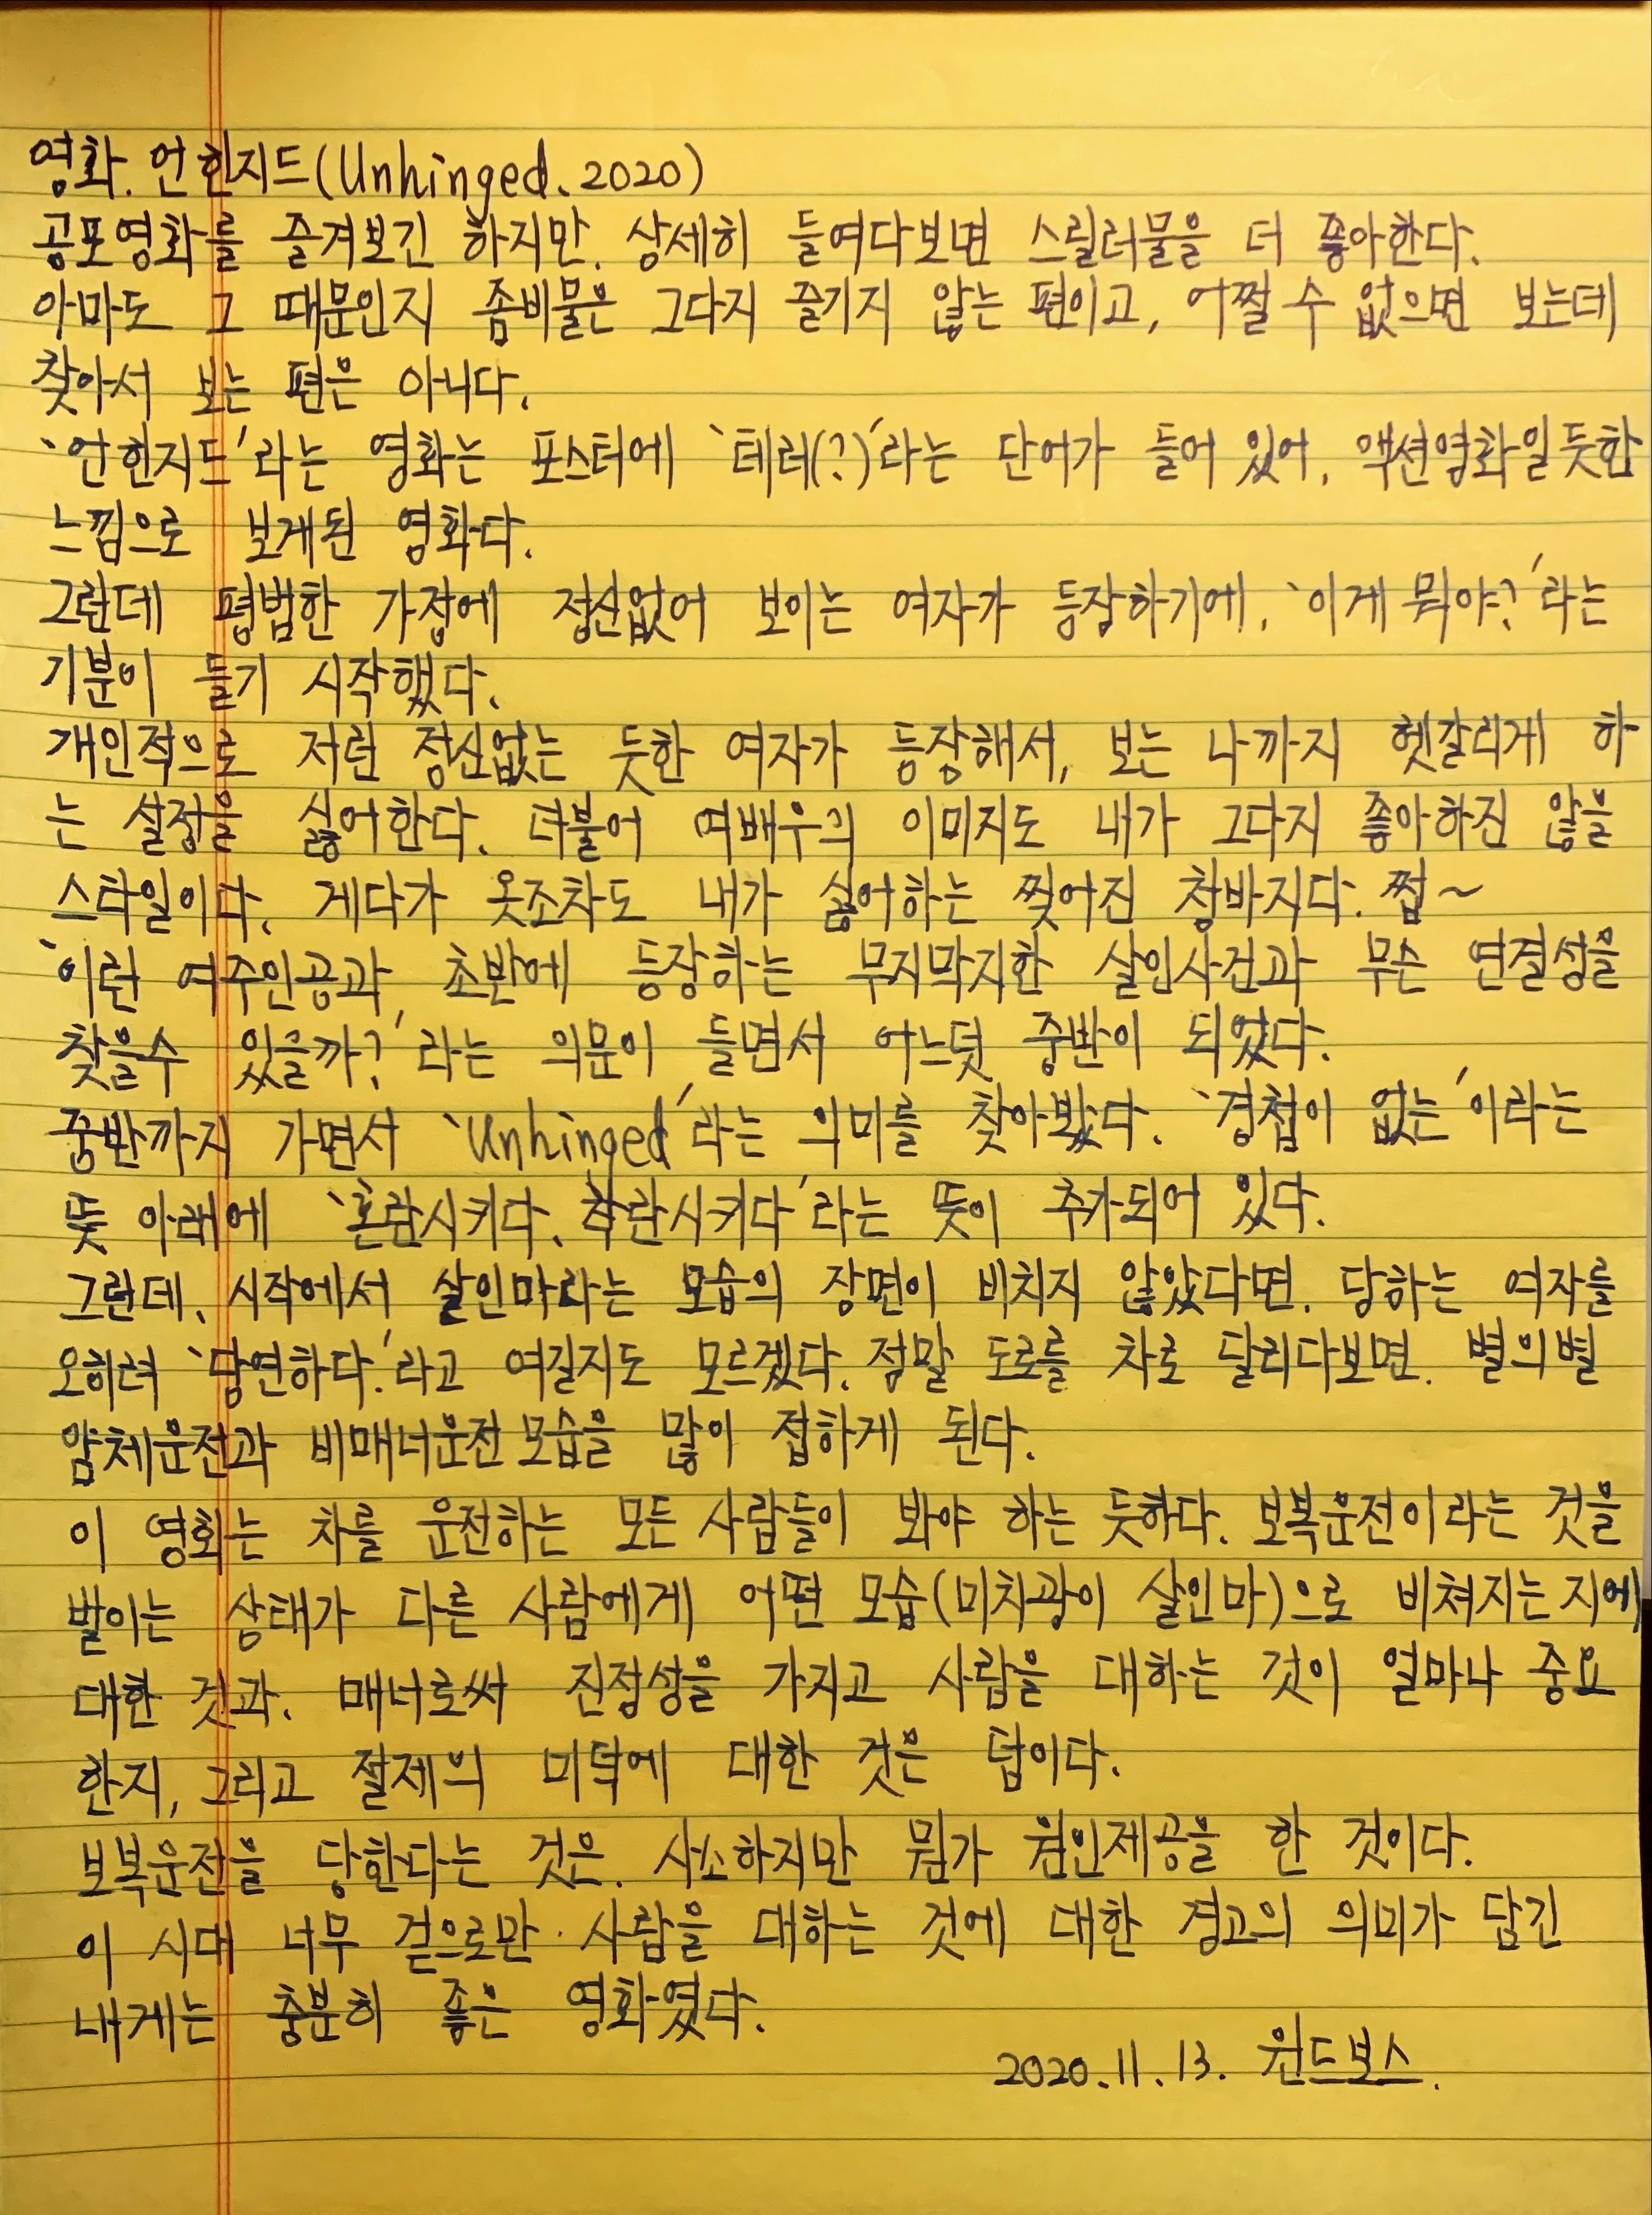 영화. 언힌지드(Unhinged. 2020)
공포영화를 즐겨보긴 하지만, 상세히 들여다보면 스릴러물을 더 좋아한다.
아마도 그 때문인지 좀비물은 그다지 즐기지 않는 편이고, 어쩔 수 없으면 보는데
찾아서 보는 편은 아니다.
'언힌지드'라는 영화는 포스터에 '테러(?)'라는 단어가 들어 있어, 액션영화일듯한
느낌으로 보게된 영화다.
그런데 평범한 가정에 정신없어 보이는 여자가 등장하기에, '이게 뭐야?'라는
기분이 들기 시작했다.
개인적으로 저런 정신없는 듯한 여자가 등장해서, 보는 나까지 헷갈리게 하
는 설정을 싫어한다. 더불어 여배우의 이미지도 내가 그다지 좋아하진 않을
스타일이다. 게다가 옷조차도 내가 싫어하는 찢어진 청바지다. 쩝~
'이런 여주인공과, 초반에 등장하는 무지막지한 살인사건과 무슨 연결성을
찾을수 있을까?'라는 의문이 들면서 어느덧 중반이 되었다.
중반까지 가면서 'Unhinged'라는 의미를 찾아봤다. '경첩이 없는'이라는
뜻 아래에 '혼란시키다, 착란시키다'라는 뜻이 추가되어 있다.
그런데, 시작에서 살인마라는 모습의 장면이 비치지 않았다면, 당하는 여자를
오히려 '당연하다.'라고 여길지도 모르겠다. 정말 도로를 차로 달리다보면, 별의별
얌체운전과 비매너운전 모습을 많이 접하게 된다.
이 영화는 차를 운전하는 모든 사람들이 봐야 하는 듯하다. 보복운전이라는 것을
벌이는 상태가 다른 사람에게 어떤 모습(미치광이 살인마)으로 비쳐지는 지에
대한 것과, 매너로써 진정성을 가지고 사람을 대하는 것이 얼마나 중요
한지, 그리고 절제의 미덕에 대한 것은 덤이다.
보복운전을 당한다는 것은, 사소하지만 뭔가 원인제공을 한 것이다.
이 시대 너무 겉으로만 사람을 대하는 것에 대한 경고의 의미가 담긴
내게는 충분히 좋은 영화였다.
2020.11.13. 윈드보스.